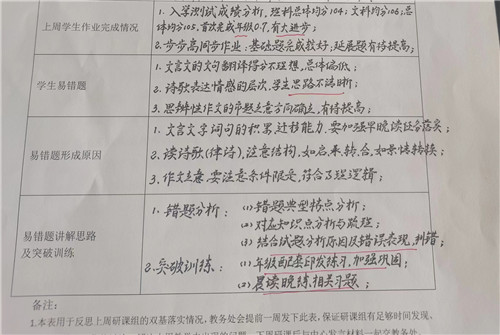 上周学生作业完成情况
1. 入学测试成绩分析, 理科总体均分104; 文科均分106; 总
体均分105, 首次完成年级0.7, 有大进步;
2. 步步高同步作业: 基础题完成较好; 延展题有待提高;
学生易错题
1. 文言文的文句翻译得分不理想, 总体偏低;
2. 诗歌表达情感的层次, 学生思路不清晰;
3. 思辨性作文的审题立意方向确立, 有待提高;
易错题形成原因
1. 文言文字词句的积累, 迁移能力, 要加强早晚读任务落实;
2. 读诗歌(律诗), 注意结构, 如启承转合, 如景情转换;
3. 作文立意, 要注意条件限定, 符合了理逻辑;
易错题讲解思路
及突破训练
1. 错题分析: (1) 错题典型特点分析;
(2) 对应知识点分析与疏理;
(3) 结合试题分析原因及错误表现, 纠错;
2. 突破训练: (1) 年级配套印发练习, 加强巩固;
(2) 晨读晚练, 相关习题;
备注:
1.本表用于反思上周研课组的双基落实情况，教务处会提前一周发下此表，保证研课组有足够时间发现、